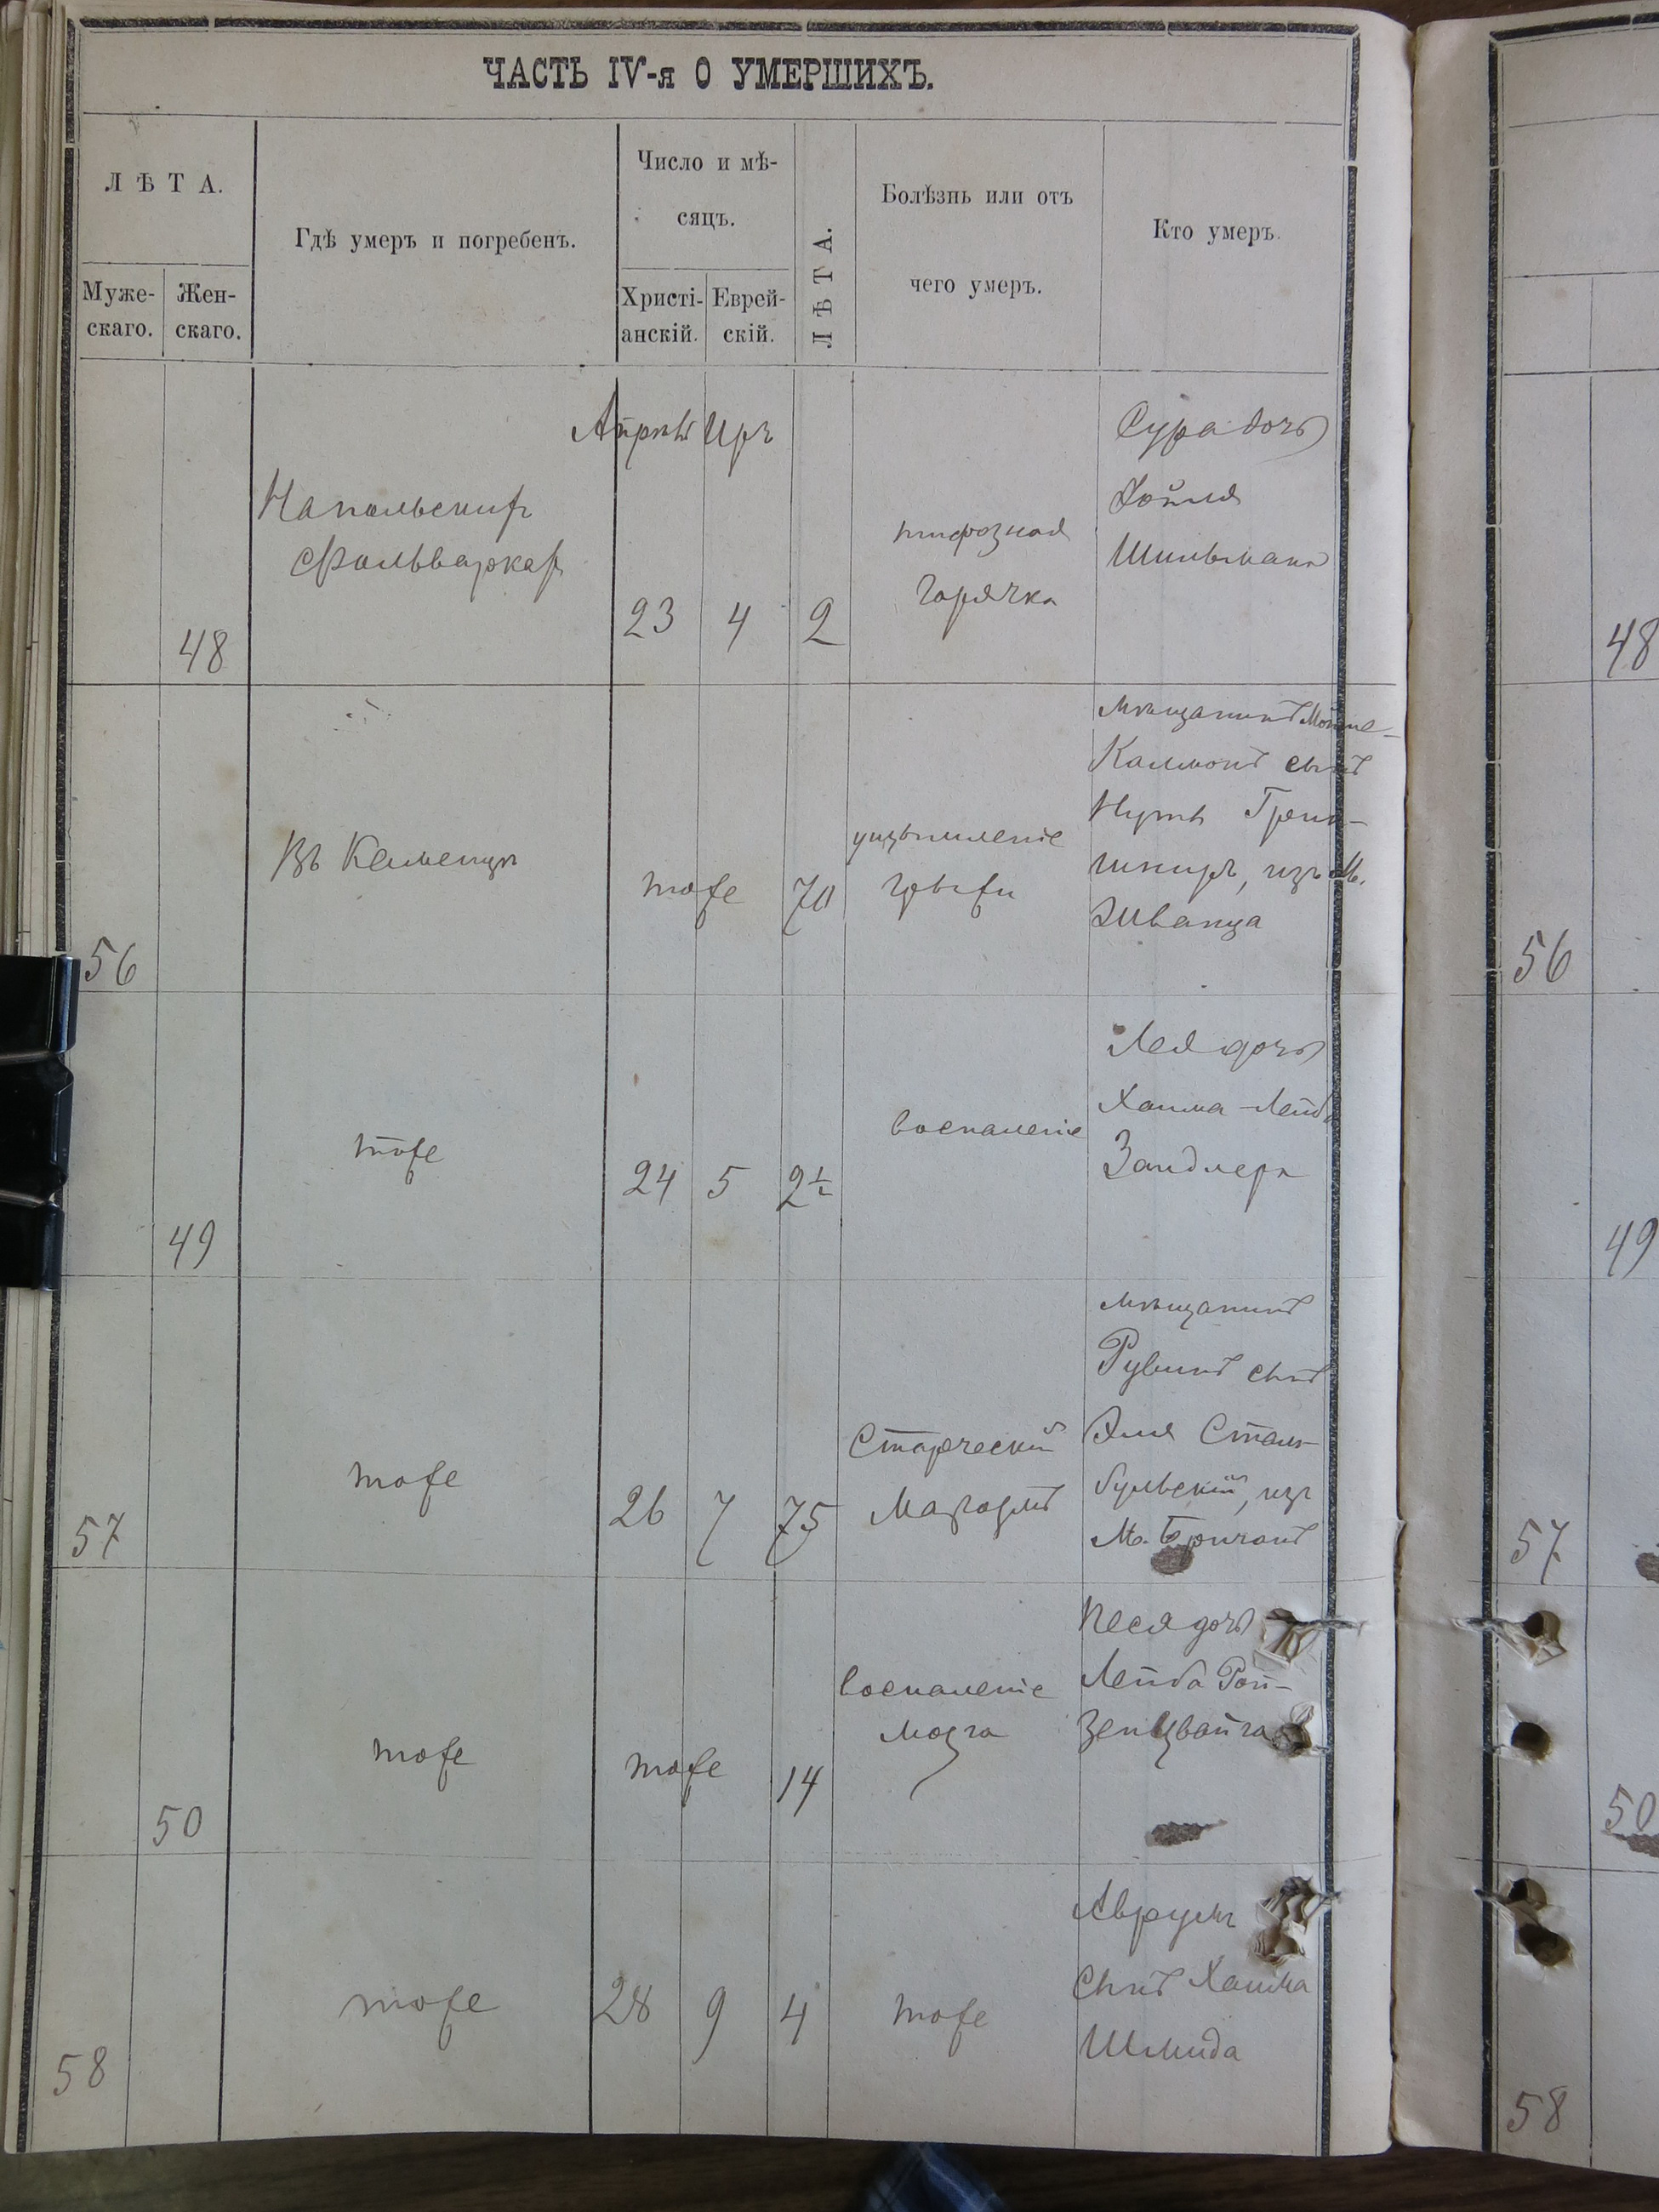 ЧАСТЬ IV-я О УМЕРШИХЪ.
ЛѢТА.
Муже-
скаго.
Жен-
скаго.
Гдѣ умеръ и погребенъ.
Число и мѣ-
сяцъ.
Христі-
анскій.
Еврей-
скій.
ЛѢТА.
Болѣзнь или отъ
чего умеръ.
Кто умеръ.
Апрѣль Иръ
48
Фольваркахъ
23
4
2
тифозная
горячка
Сура дочь
Хоймя
Шильмана
48
56
Въ Каменцѣ
тоже
70
ущемленіе
грыжи
мѣщанинъ
Калмонъ сынъ
Нутъ Грин-
шпиръ, изъ м.
Жванца
56
49
тоже
24
5
2½
воспаленіе
Лея дочь
Хаима-Лейба
Зандлера
49
57
тоже
26
7
75
Старческій
Маразмъ
мѣщанинъ
Рувинъ сынъ
Эля Стам-
бульскій, изъ
М. Бричанъ
57
50
тоже
тоже
14
воспаленіе
мозга
Песя дочь
Лейба Рой-
зенцвайга
50
58
тоже
28
9
4
тоже
Аврумъ
сынъ Хаима
Шмида
58